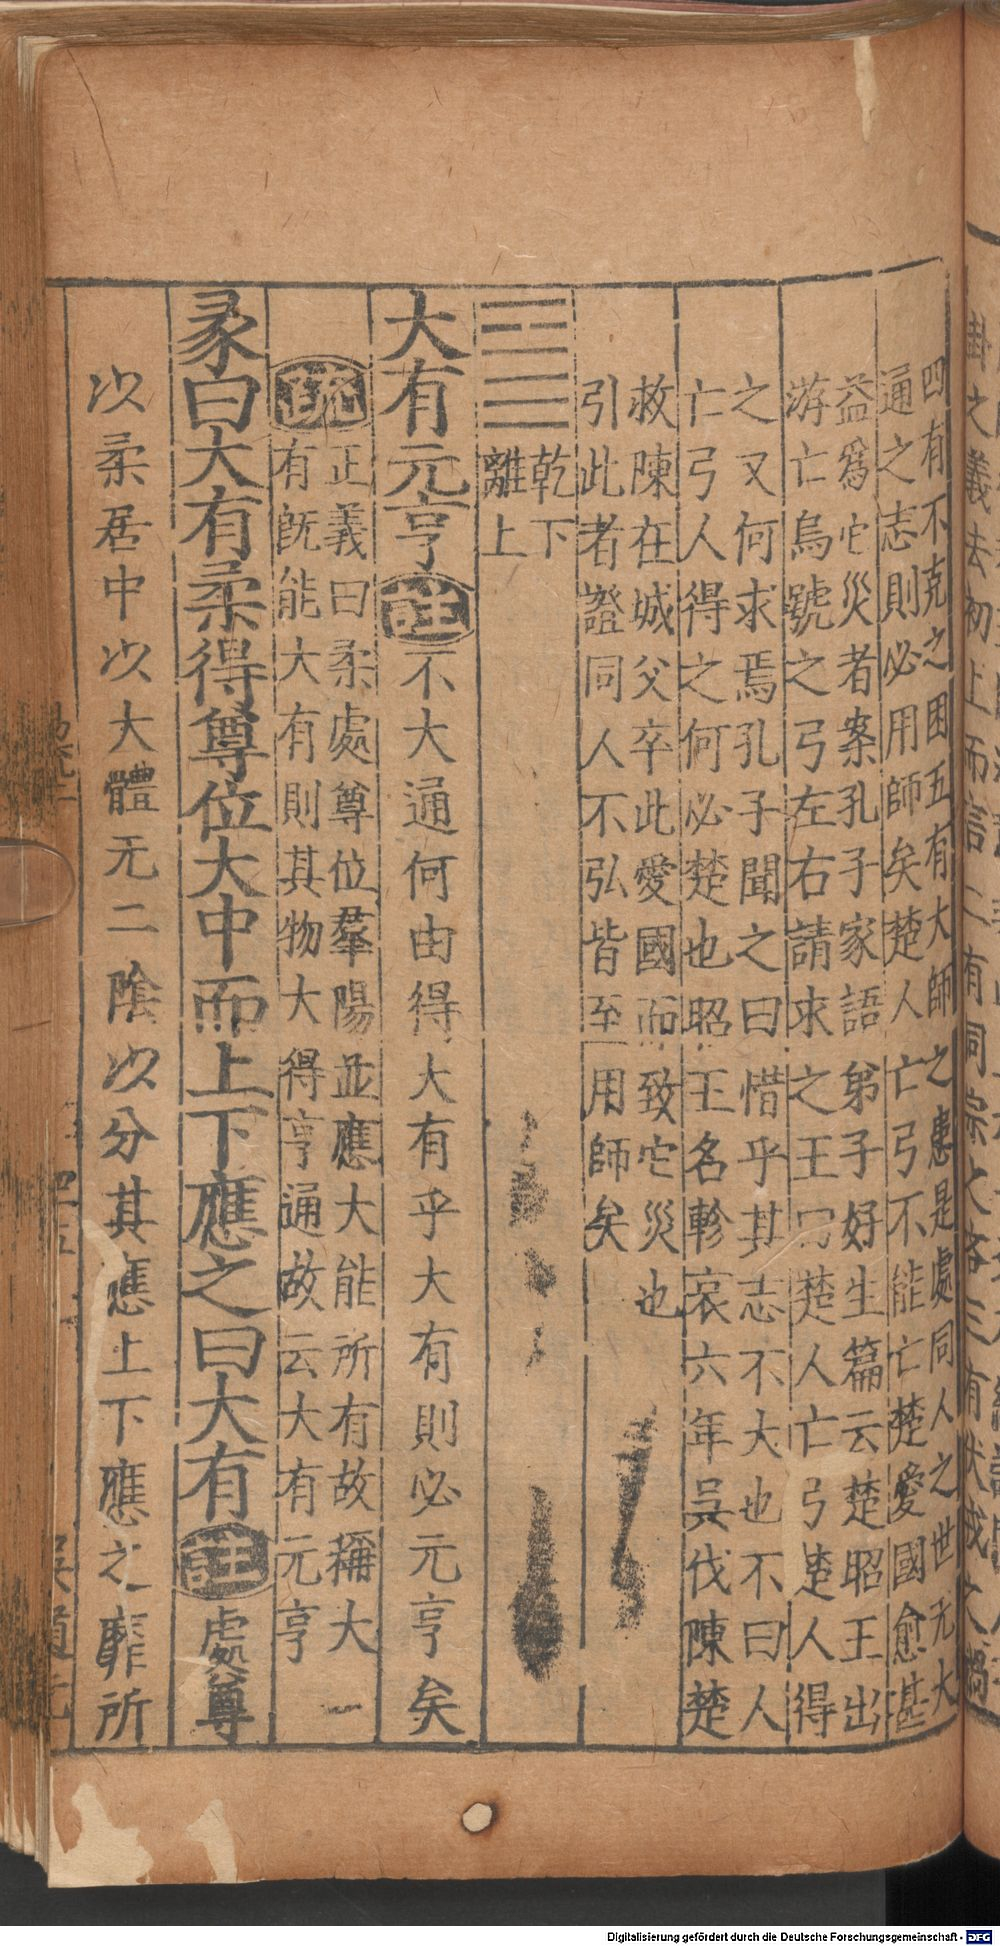 四有不克之困五有大師之患是處同人之世无大
通之志則必用師矣楚人亡弓不能亡楚愛國愈甚
益爲它災者案孔子家語弟子好生篇云楚昭王出
游亡烏號之弓左右請求之王曰楚人亡弓楚人得
之又何求焉孔子聞之曰惜乎其志不大也不曰人
亡弓人得之何必楚也昭王名軫哀六年吳伐陳楚
救陳在城父卒此愛國而致它災也
引此者證同人不弘皆至用師矣
䷍乾下
離上
大有元亨註不大通何由得大有乎大有則必元亨矣
疏正義曰柔處尊位羣陽並應大能所有故稱大
有既能大有則其物大得亨通故云大有元亨
彖曰大有柔得尊位大中而上下應之曰大有註處尊
以柔居中以大體无二陰以分其應上下應之靡所
Digitalisierung gefördert durch die Deutsche Forschungsgemeinschaft - DFG